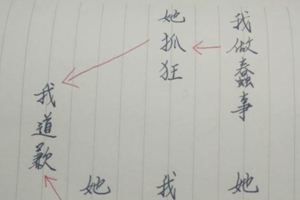 我做蠢事
她抓狂
我道歉
她
我
她